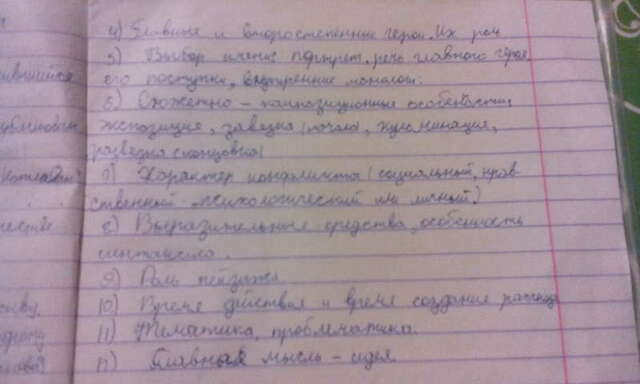 4) Главные и второстепенные герои. Их роль
5) Выбор имени, портрет, речь главного героя
его поступки, внутренние монологи.
6) Сюжетно - композиционные особенности,
экспозиция, завязка (начало, кульминация,
развязка (концовка)
7) Характер конфликта (социальный, нрав-
ственный психологический или личный.)
8) Выразительные средства, особенность
синтаксиса.
9) Роль пейзажа
10) Время действия и время создания
11) Тематика, проблематика.
12) Главная мысль - идея